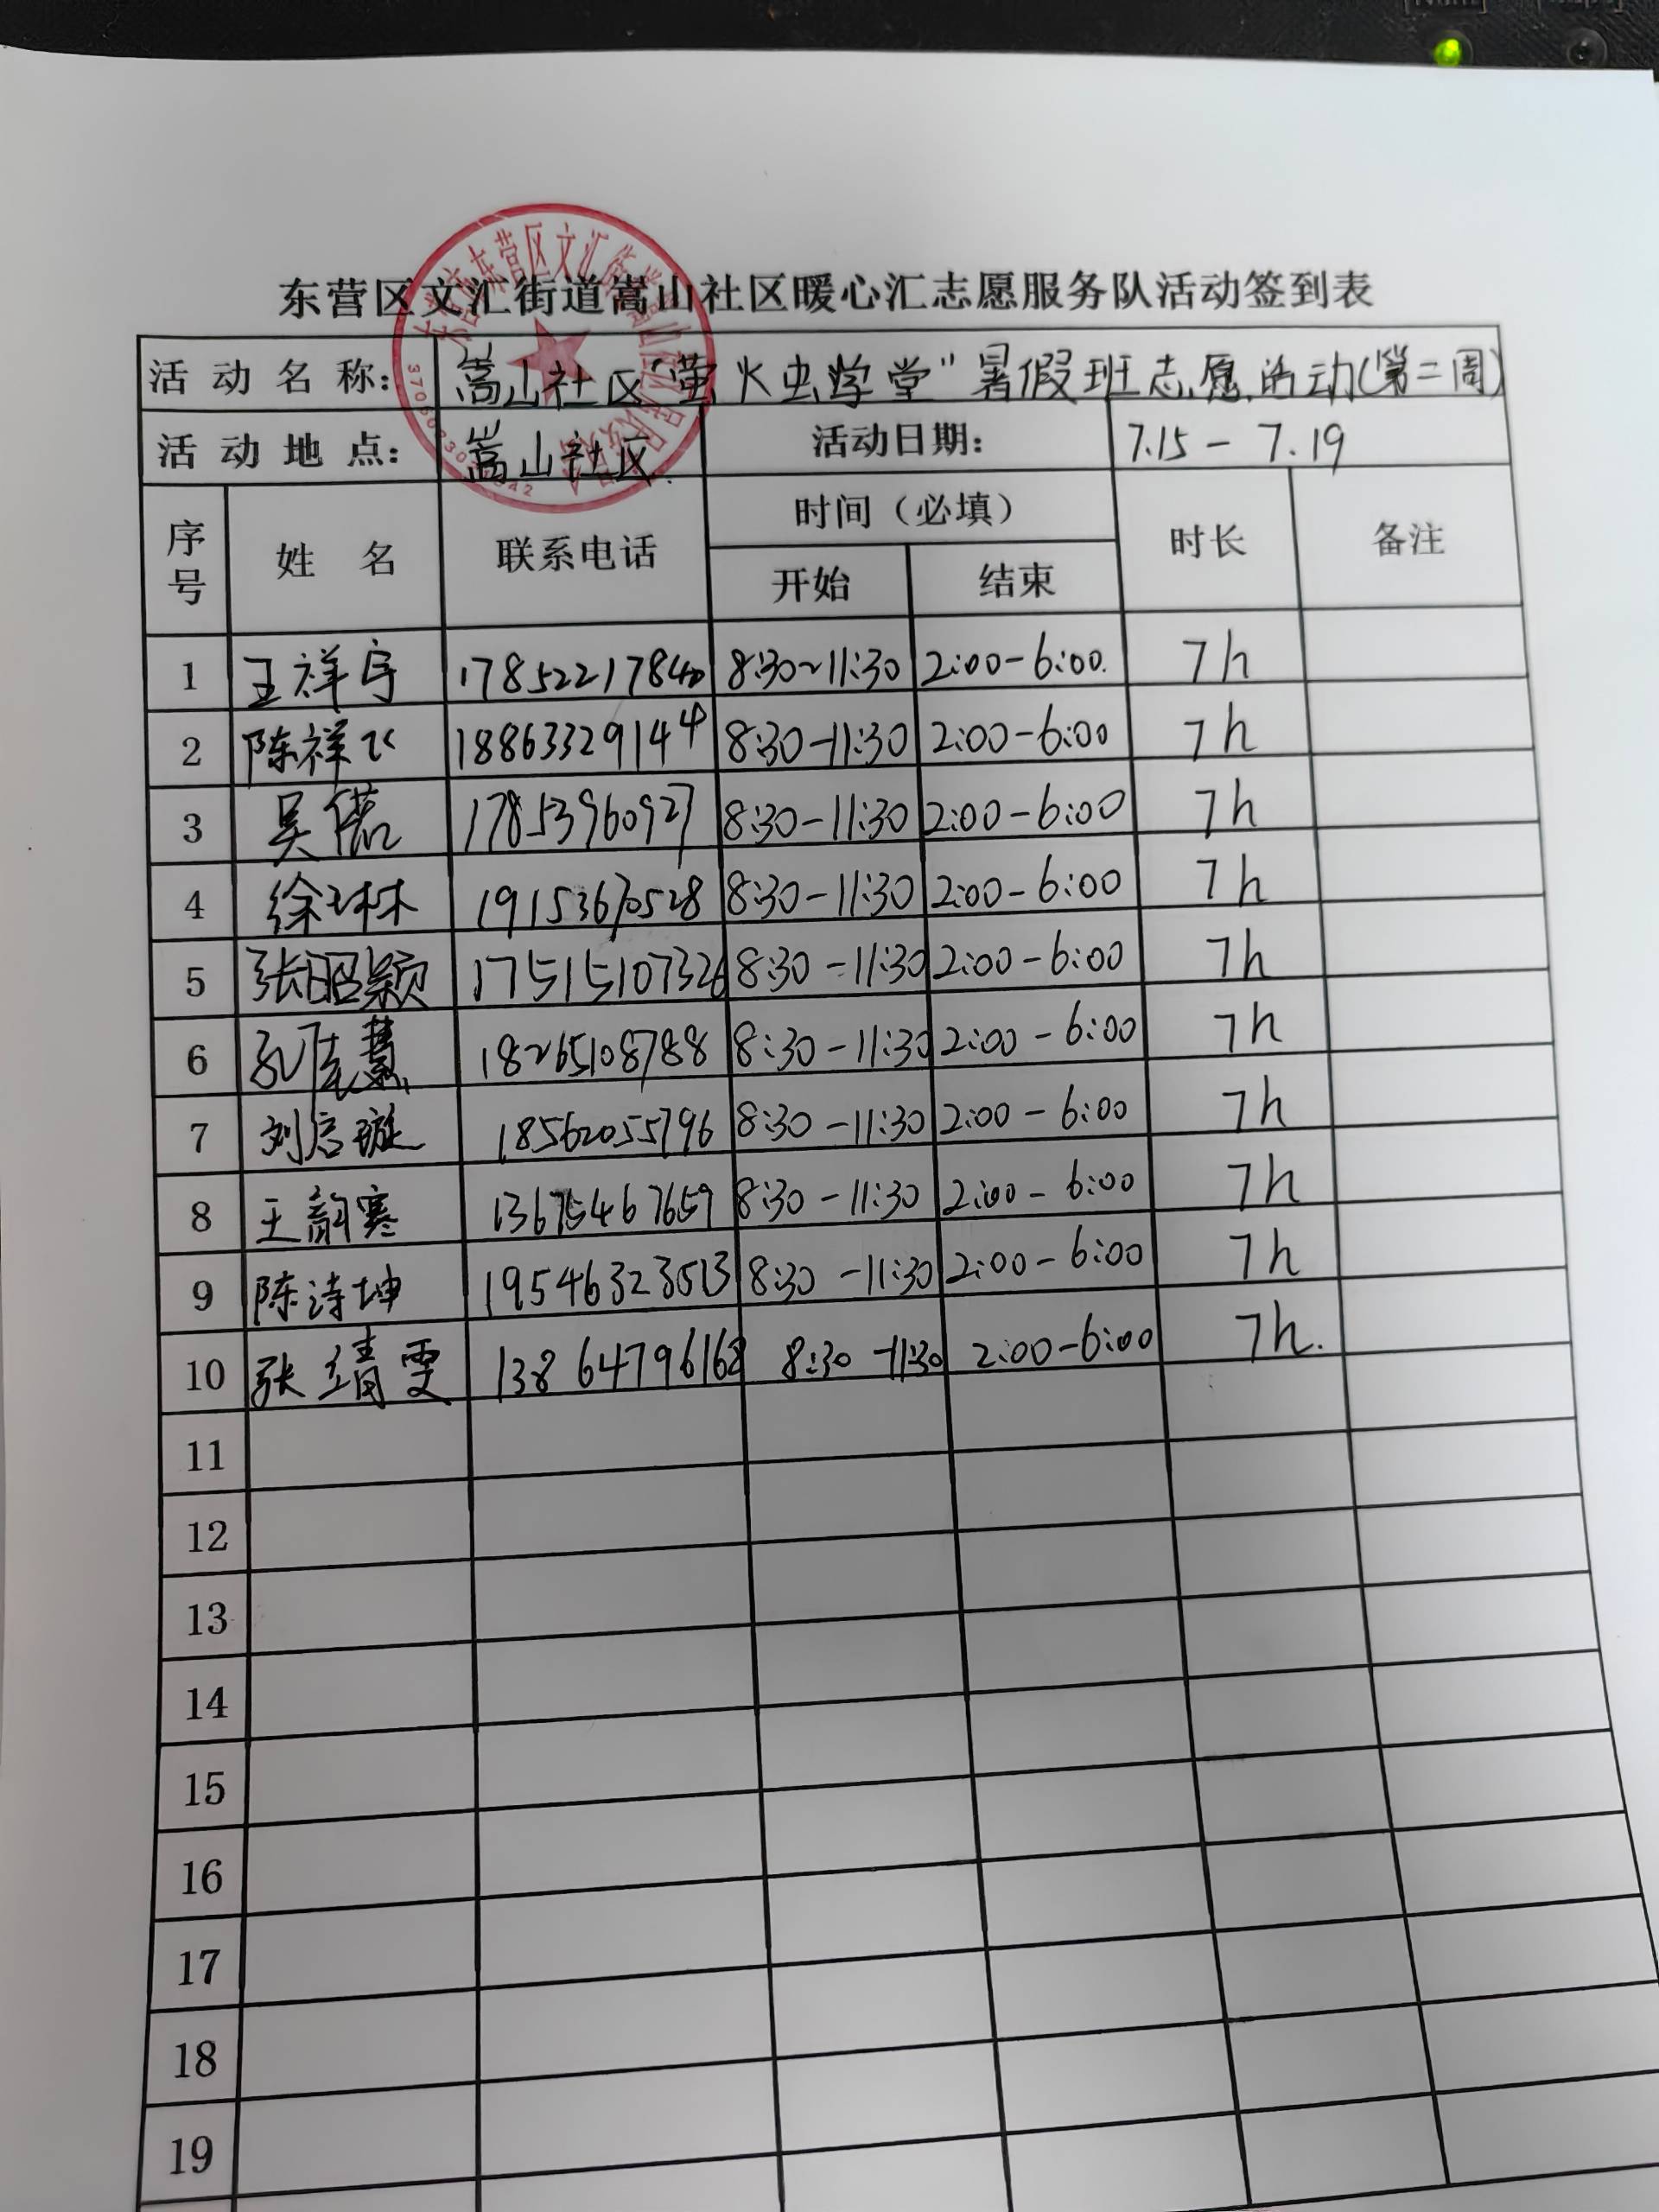 东营区文汇街道嵩山社区暖心汇志愿服务队活动签到表
活动名称： 嵩山社区“萤火虫学堂”暑假班志愿活动(第二周)
活动地点： 嵩山社区. 活动日期： 7.15 - 7.19
序号 姓 名 联系电话 时间（必填） 时长 备注
开始 结束
1 王祥宇 17852217840 8:30~11:30 2:00-6:00. 7h
2 陈祥飞 18863329144 8:30-11:30 2:00-6:00 7h
3 吴偌 17853960927 8:30-11:30 2:00-6:00 7h
4 徐琳 19153670528 8:30-11:30 2:00-6:00 7h
5 张昭颖 17515107326 8:30-11:30 2:00-6:00 7h
6 孔佳慧 18265108788 8:30-11:30 2:00-6:00 7h
7 刘启璇 18562055796 8:30-11:30 2:00-6:00 7h
8 王韵寒 13675467659 8:30-11:30 2:00-6:00 7h
9 陈诗坤 19546323513 8:30-11:30 2:00-6:00 7h
10 张靖雯 13864796168 8:30-11:30 2:00-6:00 7h.
11
12
13
14
15
16
17
18
19